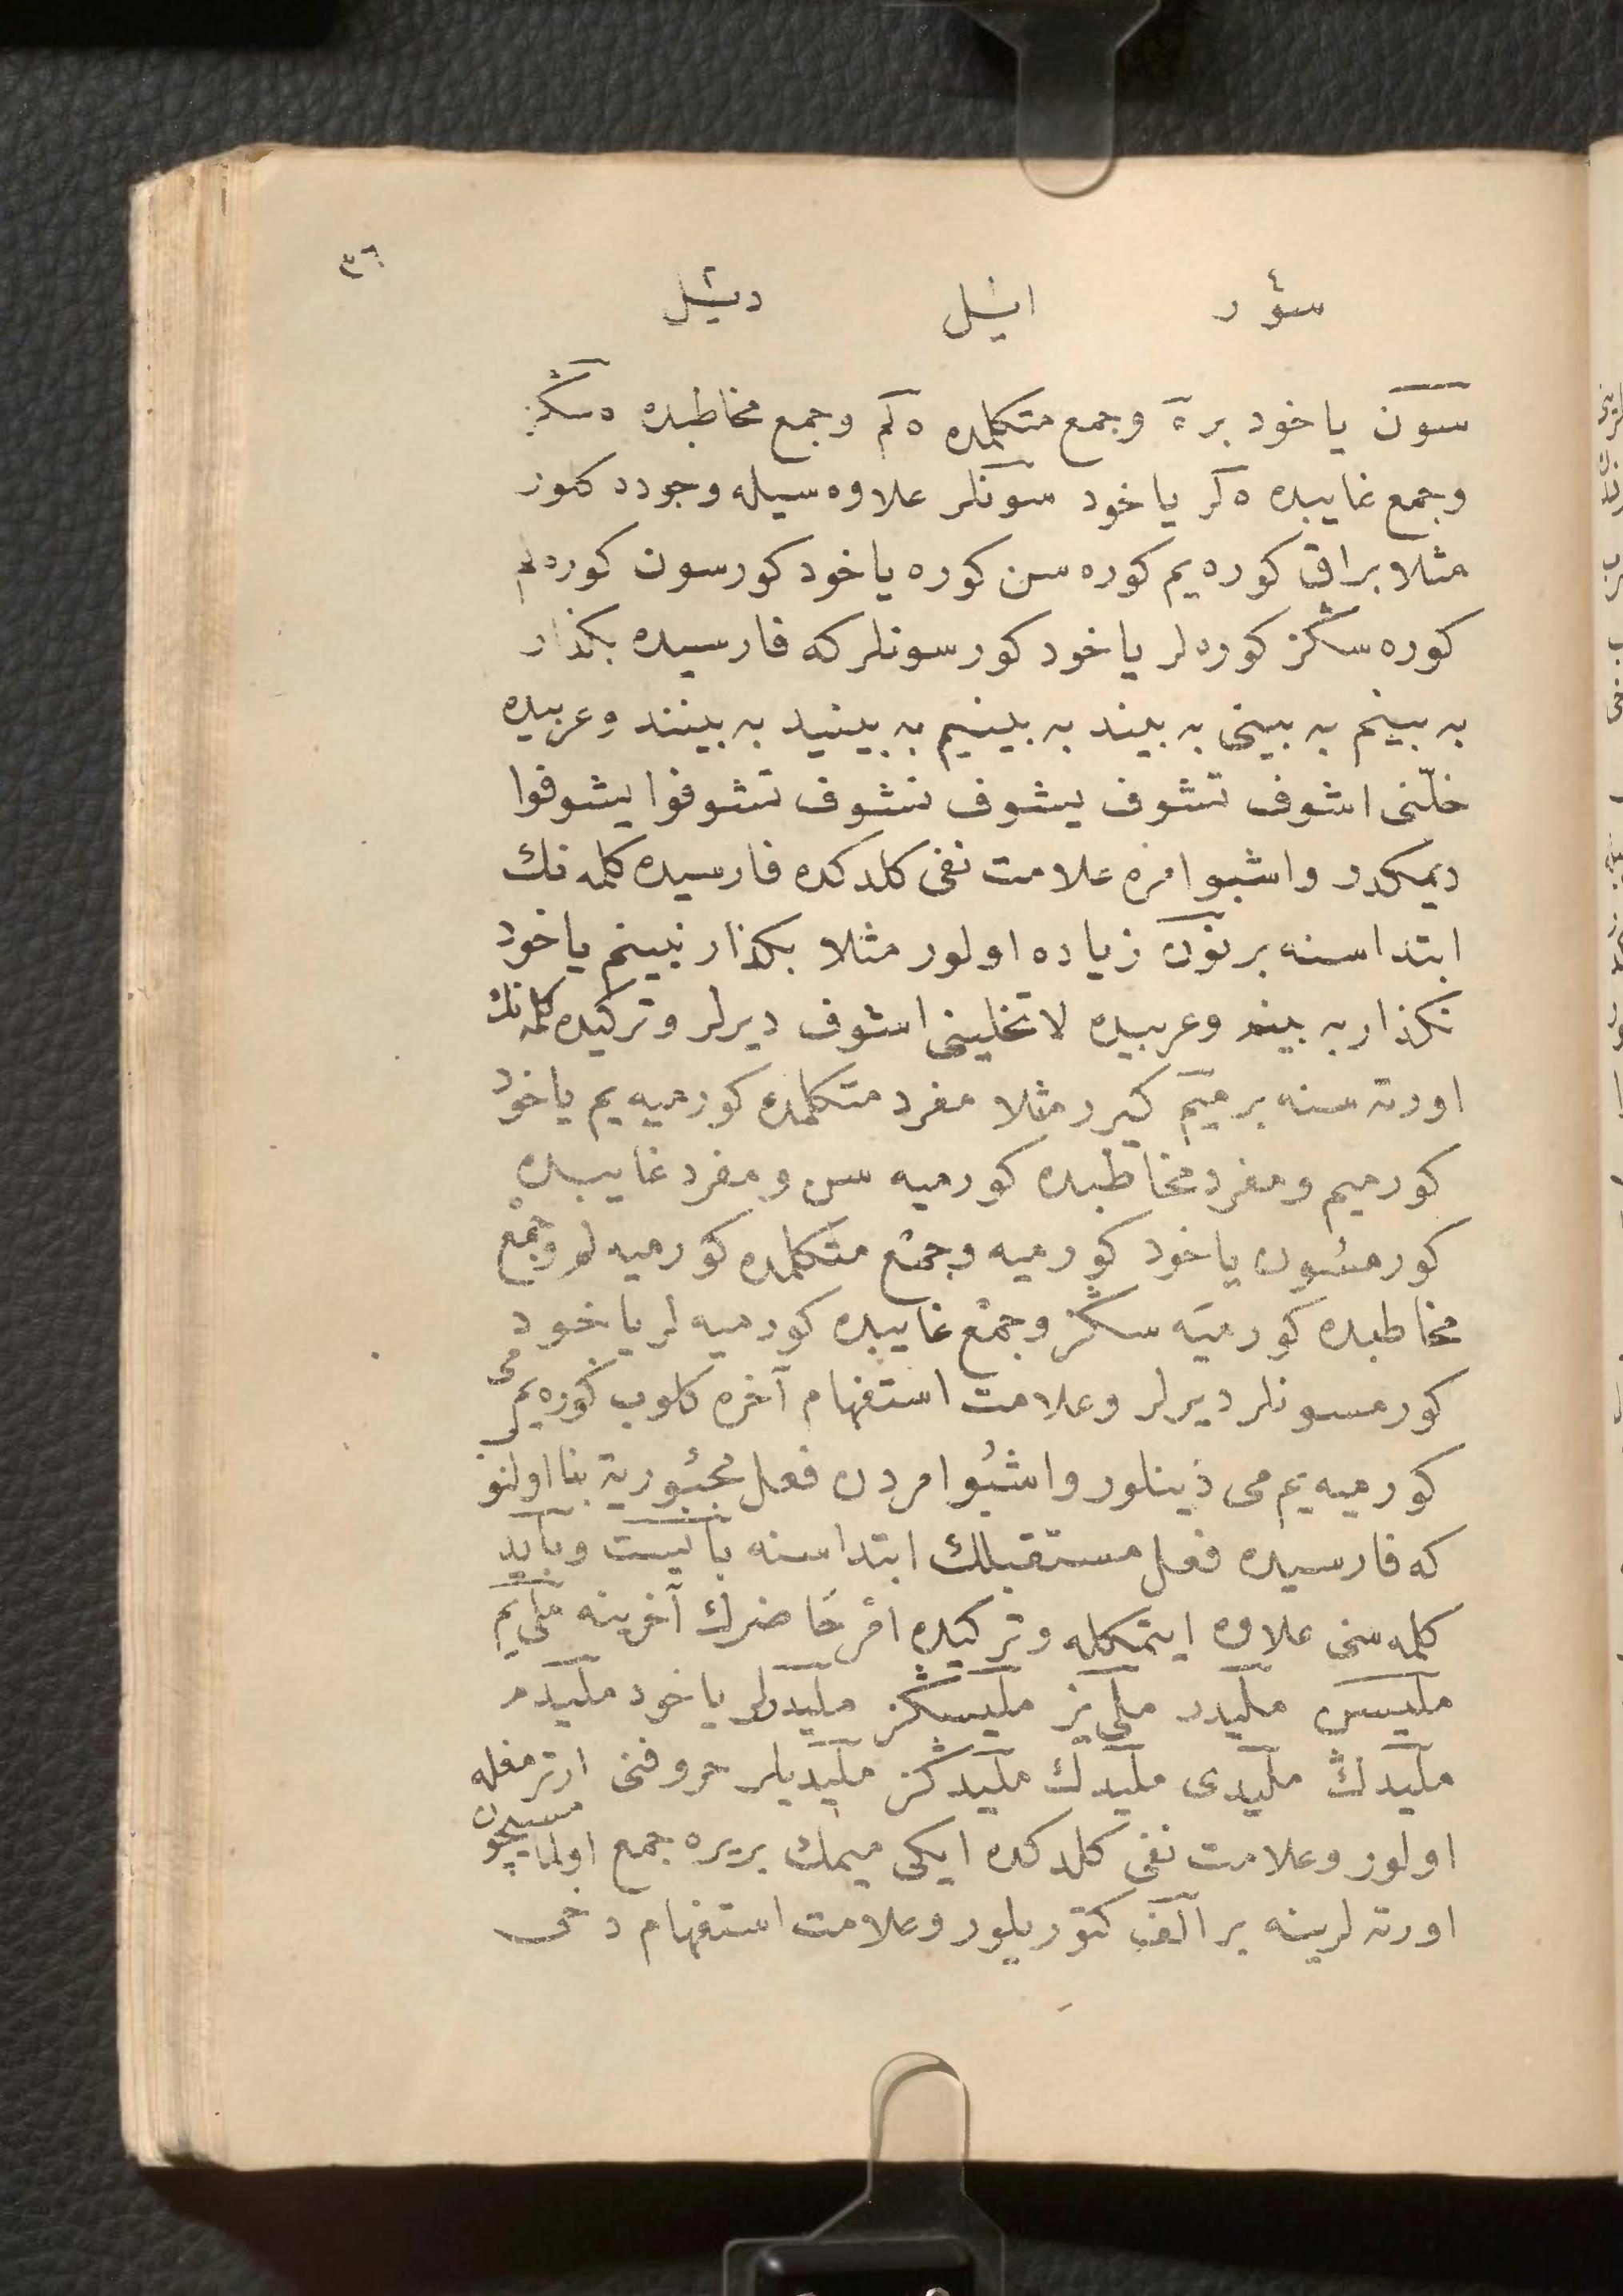 ٣٦
سؤر ایشل دیشل
سون یاخود بر ه وجمع متکلمده ه لم وجمع مخاطبده ه سڭز
وجمع غایبده ه لر یاخود سونلر علاوه سیله وجود کلور
مثلا براق کوره یم کوره سن کوره یاخود کورسون کوره لم
کوره سڭز کوره لر یاخود کورسونلر که فارسیده بکذار
به بینم به بینی به بیند به بینیم به بینید به بینند وعربیده
خلّنی اشوف تشوف یشوف نشوف تشوفوا یشوفوا
دیمکدر واشبو امره علامت نفی کلدکده فارسیده کلمه نك
ابتداسنه بر نون زیاده اولور مثلا بکذار نبینم یاخود
نکذار به بینم وعربیده لا تخلینی اشوف دیرلر وترکیده کلمه نك
اورته سنه بر میم کیرر مثلا مفرد متکلمده کورمیه یم یاخود
کورمیم ومفرد مخاطبده کورمیه سن ومفرد غایبده
کورمسون یاخود کورمیه وجمع متکلمده کورمیه لم وجمع
مخاطبده کورمیه سڭز وجمع غایبده کورمیه لر یاخود
کورمسونلر دیرلر وعلامت استفهام آخره کلوب کوره یم می
کورمیه یم می دینلور واشبو امردن فعل مجبوریة بنا اولنور
که فارسیده فعل مستقبلك ابتداسنه بایست وباید
کلمه سنی علاوه ایتمکله وترکیده امر حاضرك آخرینه ملی یم
ملیسن ملیدر ملی یز ملیسڭز ملیدرلر یاخود ملیدم
ملیدڭ ملیدی ملیدك ملیدڭز ملیدیلر حروفنی ارترمغله
اولور وعلامت نفی کلدکده ایکی میمك بریره جمع اولنمامسیچون
اورته لرینه بر الف کتوریلور وعلامت استفهام دخی